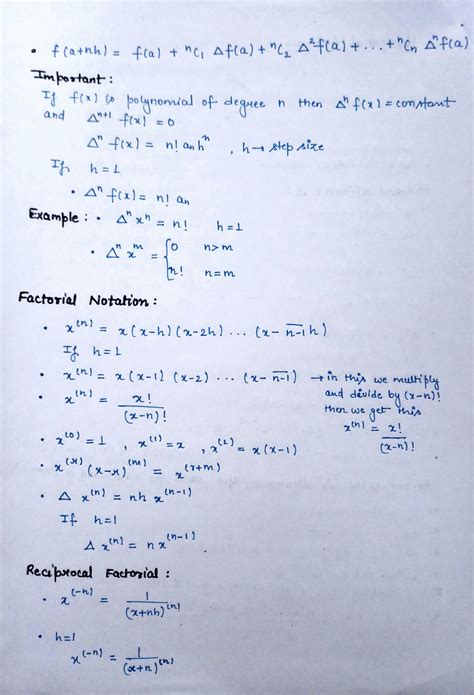 • f(a+nh) = f(a) + ⁿC₁ Δf(a) + ⁿC₂ Δ²f(a) + ... + ⁿCₙ Δⁿf(a)
Important :
If f(x) is polynomial of degree n then Δⁿ f(x) = constant
and Δⁿ⁺¹ f(x) = 0
Δⁿ f(x) = n! aₙhⁿ , h → step size
If h = 1
• Δⁿ f(x) = n! aₙ
Example : • Δⁿ xⁿ = n! h = 1
• Δⁿ xᵐ = { 0 n>m
n! n=m
Factorial Notation :
• x⁽ⁿ⁾ = x(x-h)(x-2h) ... (x- n̅-̅1̅ h)
If h = 1
• x⁽ⁿ⁾ = x(x-1)(x-2) ... (x- n̅-̅1̅) → in this we multiply
and divide by (x-n)!
then we get this
x⁽ⁿ⁾ = x!/(x-n)!
• x⁽ⁿ⁾ = x!/(x-n)!
• x⁽⁰⁾ = 1 , x⁽¹⁾ = x , x⁽²⁾ = x(x-1)
• x⁽ʳ⁾ (x-r)⁽ᵐ⁾ = x⁽ʳ⁺ᵐ⁾
• Δ x⁽ⁿ⁾ = nh x⁽ⁿ⁻¹⁾
If h=1
Δ x⁽ⁿ⁾ = n x⁽ⁿ⁻¹⁾
Reciprocal Factorial :
• x⁽⁻ⁿ⁾ = 1/(x+nh)⁽ⁿ⁾
• h=1
x⁽⁻ⁿ⁾ = 1/(x+n)⁽ⁿ⁾